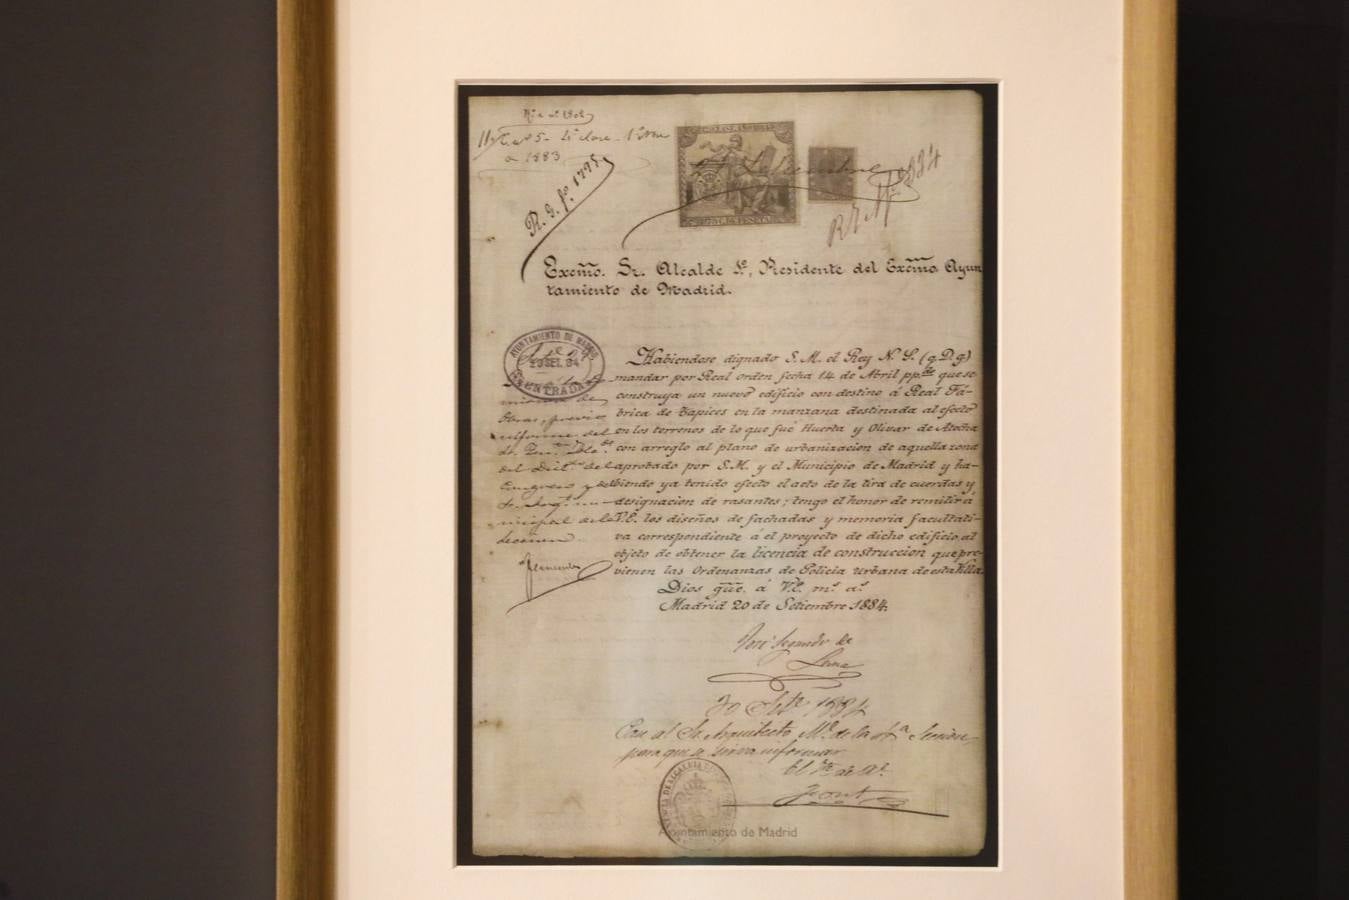 1883
R. G. fº. 1795
1884
Excmo. Sr. Alcalde 1º, Presidente del Excmo. Ayun-
tamiento de Madrid.
AYUNTAMIENTO DE MADRID
29 SET. 84
ENTRADA
Habiendose dignado S. M. el Rey N. S. (q. D. g)
mandar por Real orden fecha 14 de Abril pp.do que se
construya un nuevo edificio con destino á Real Fá-
brica de Tapices en la manzana destinada al efecto
en los terrenos de lo que fué Huerta y Olivar de Atocha
con arreglo al plano de urbanizacion de aquella zona
aprobado por S. M. y el Municipio de Madrid y ha-
biendo ya tenido efecto el acto de la tira de cuerdas y
designacion de rasantes; tengo el honor de remitir á
V. E. los diseños de fachadas y memoria facultati-
va correspondiente á el proyecto de dicho edificio, al
objeto de obtener la licencia de construccion que pre-
vienen las Ordenanzas de Policia urbana de esta Villa.
Dios gue. á V. E. m.s a.s
Madrid 20 de Setiembre 1884.
Obras, previo
informe del
José Segundo de
Lema
30 Set.e 1884
para que se sirva informar
Ayuntamiento de Madrid